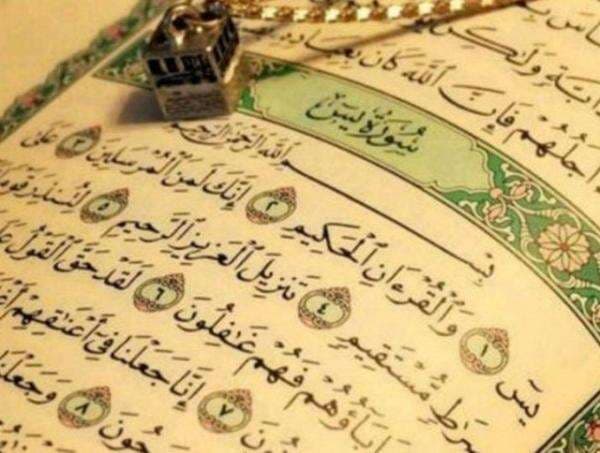 وَلَـٰكِن
أَجَلُهُمْ فَإِنَّ ٱللَّهَ كَانَ بِعِبَادِهِ
سُورَةُ يسٓ
بِسْمِ ٱللَّهِ ٱلرَّحْمَـٰنِ ٱلرَّحِيمِ
يسٓ ١ وَٱلْقُرْءَانِ ٱلْحَكِيمِ ٢ إِنَّكَ لَمِنَ ٱلْمُرْسَلِينَ ٣ عَلَىٰ
صِرَٰطٍ مُّسْتَقِيمٍ ٤ تَنزِيلَ ٱلْعَزِيزِ ٱلرَّحِيمِ ٥ لِتُنذِرَ قَوْمًا
ءَابَآؤُهُمْ فَهُمْ غَـٰفِلُونَ ٦ لَقَدْ حَقَّ ٱلْقَوْلُ
٧ إِنَّا جَعَلْنَا فِىٓ أَعْنَـٰقِهِمْ
٨ وَجَعَلْنَا